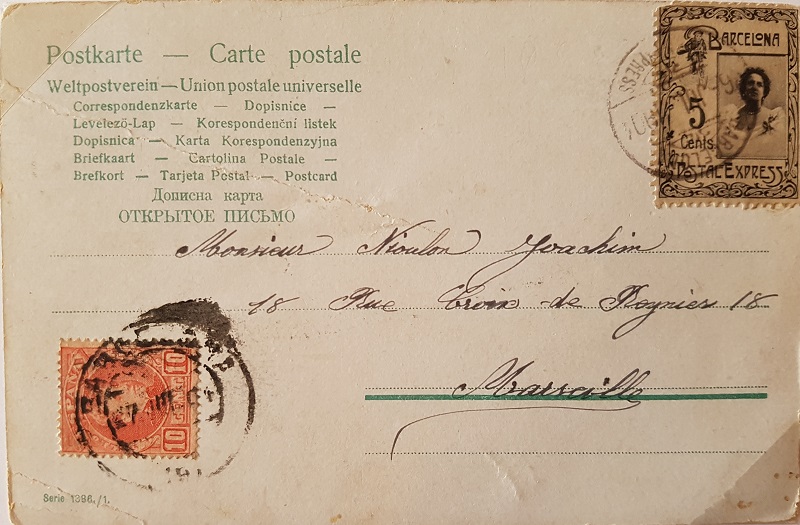 Postkarte — Carte postale
Weltpostverein — Union postale universelle
Correspondenzkarte — Dopisnice —
Levelező-Lap — Korespondenční listek
Dopisnica — Karta Korespondenzyjna
Briefkaart — Cartolina Postale —
Brefkort — Tarjeta Postal — Postcard
Дописна карта
ОТКРЫТОЕ ПИСЬМО
BARCELONA
5
Cents.
POSTAL EXPRESS
Monsieur Nioulon Joachim
18 Rue Croix de Regnier 18
Marseille
10 10
10 10
Serie 1396./1.